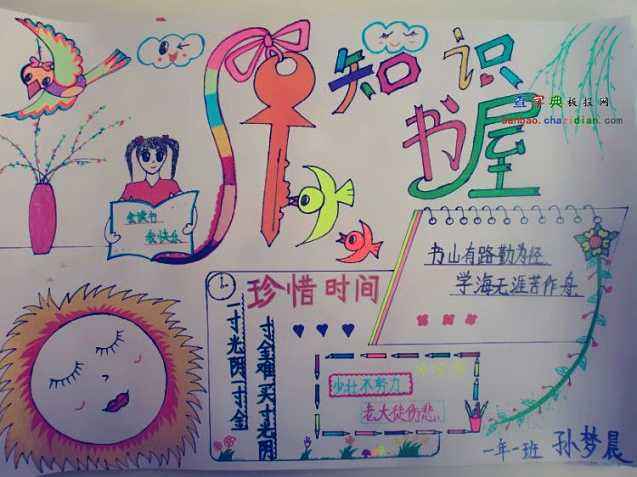 知识
书屋
查字典板报网
banbao.chazidian.com
读书
我快乐
书山有路勤为径
学海无涯苦作舟
珍惜时间
一寸光阴一寸金
寸金难买寸光阴
少壮不努力
老大徒伤悲
一年一班 孙梦晨